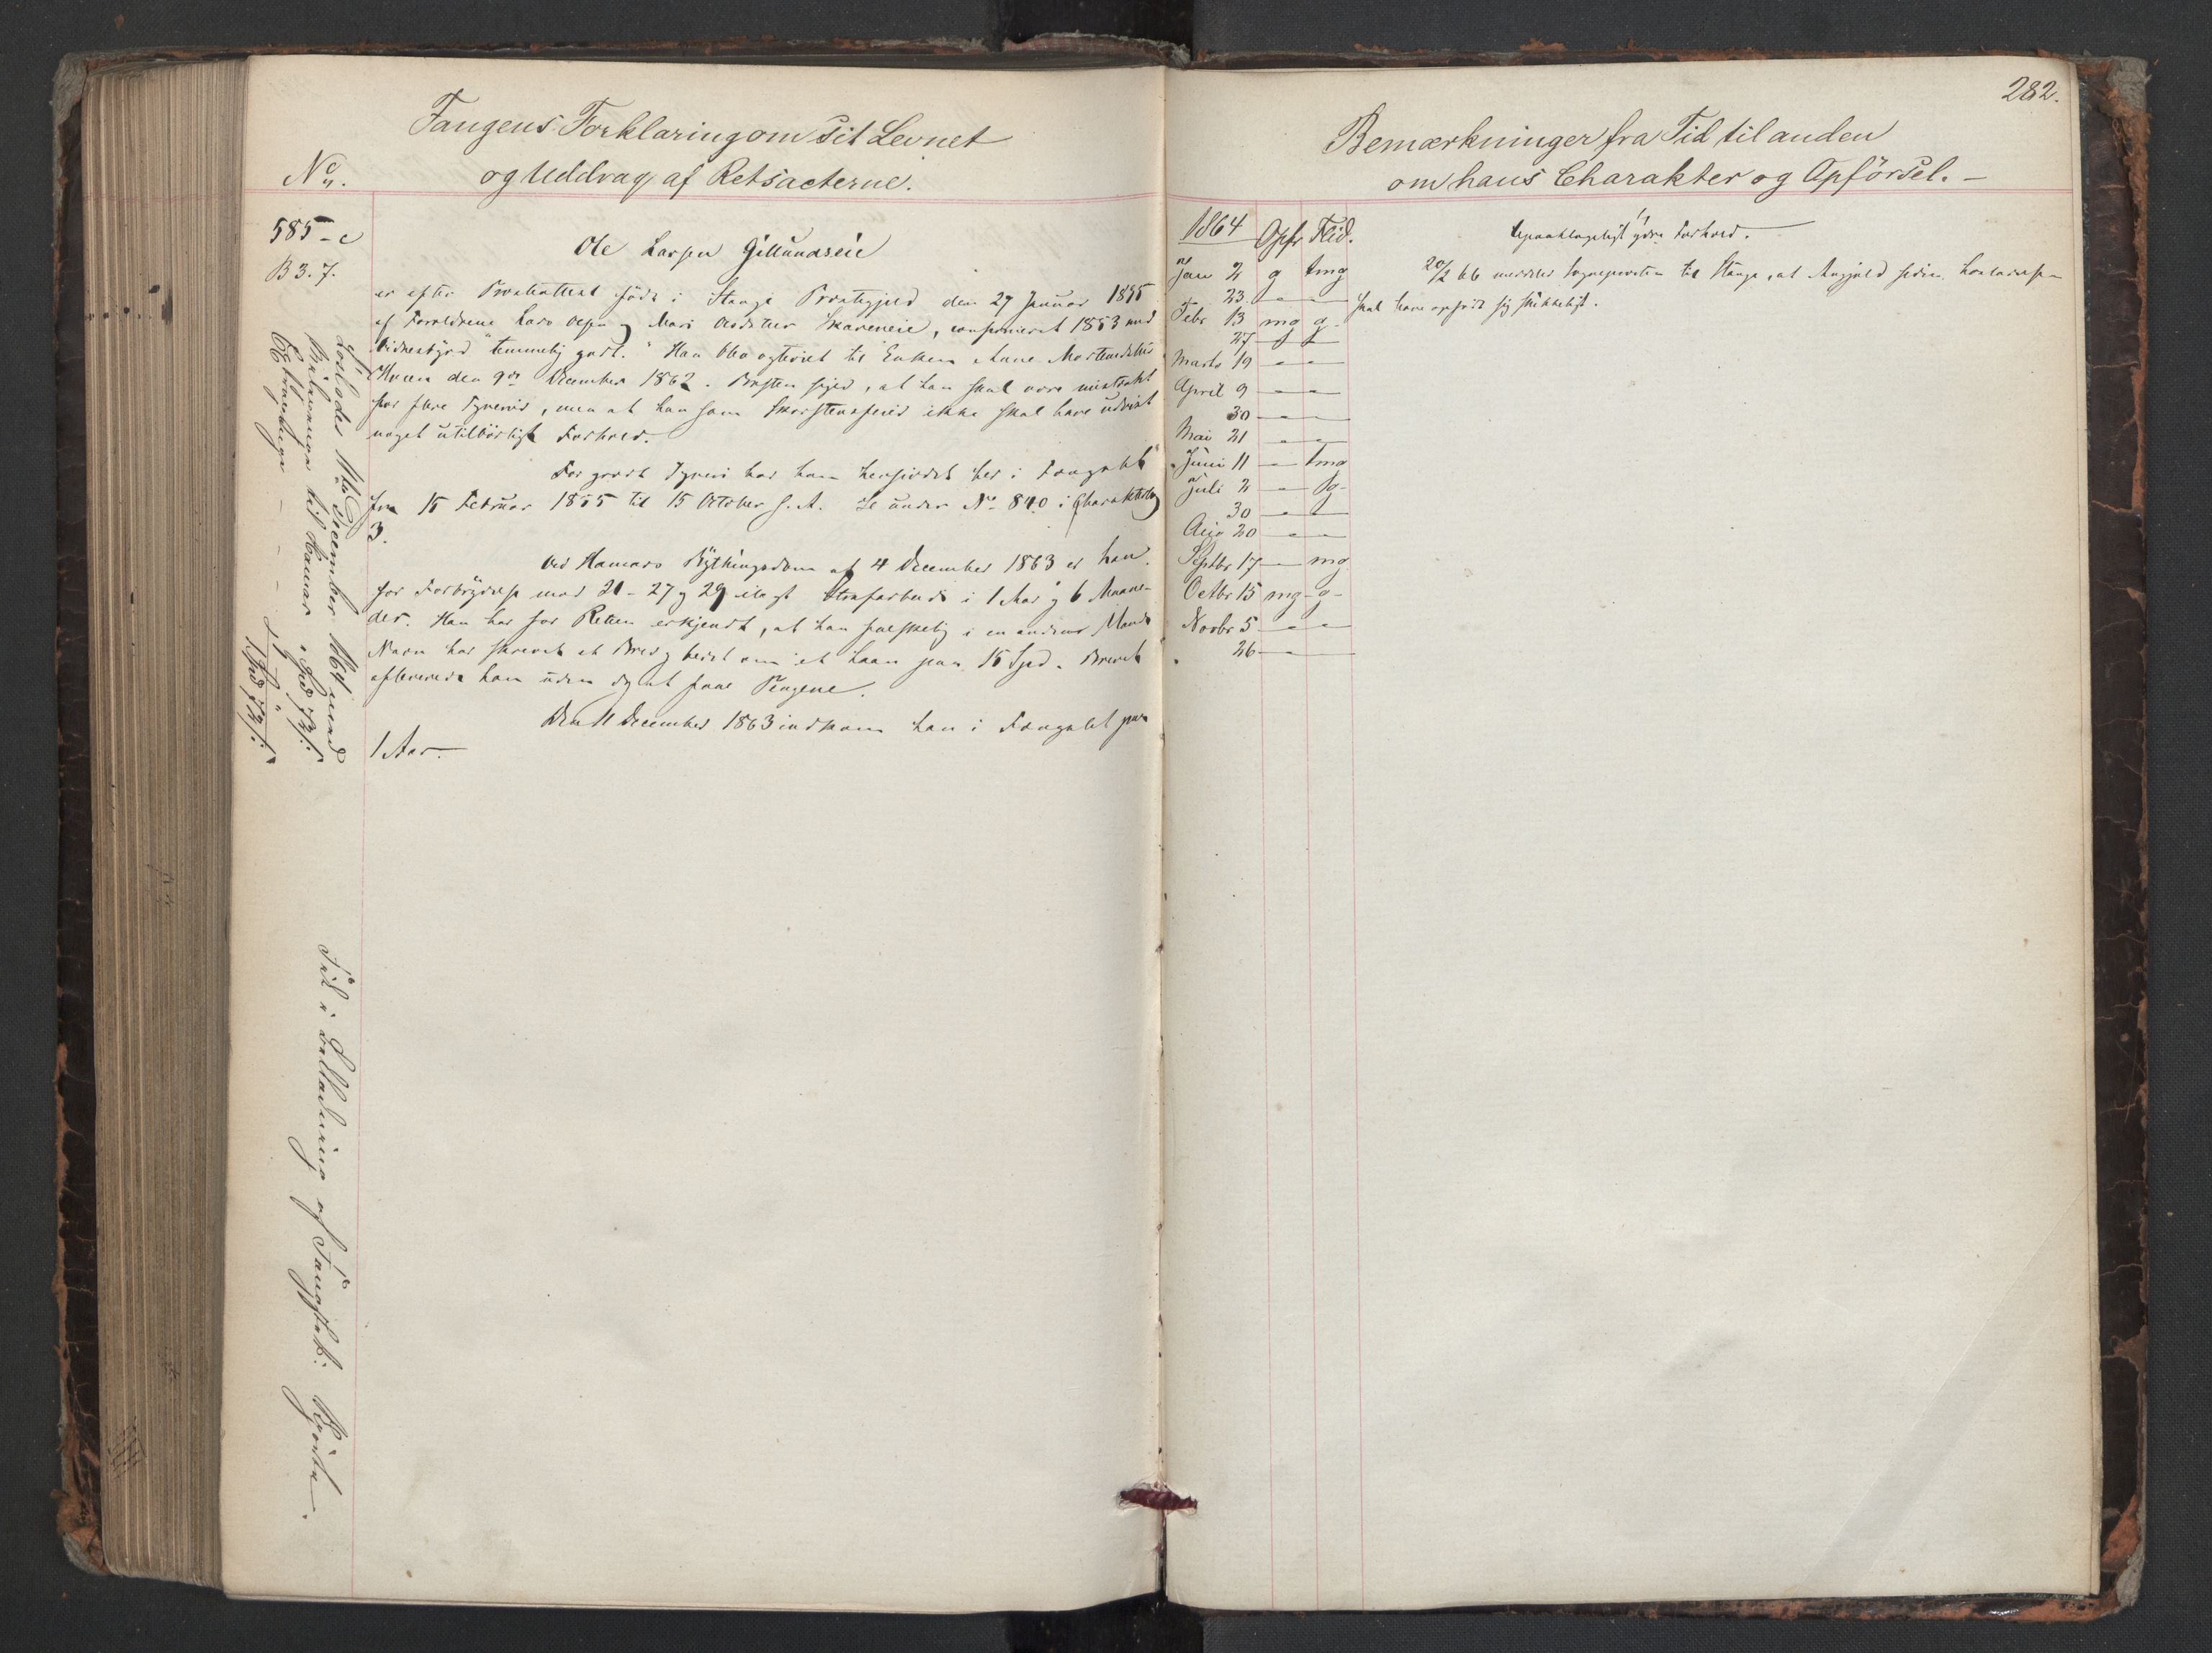 282.
Fangens Forklaring om sit Levnet
og Uddrag af Retsacterne.
No.
585-c
B 3. 7.
Ole Larsen Gillundseie
er efter Præsteattest født i Stange Præstegjeld den 27 Januar 1835
af Forældrene Lars Olsen og Mari Skareneie, confirmeret 1853 med
Vidnesbyrd "temmelig godt." Han blev ægteviet til Enken Anne Mortensdatter
den 9de December 1862. Præsten siger, at han skal være mistænkt
for flere Tyverier, men at han som Skorstensfeier ikke skal have udvist
noget utilbørligt Forhold.
For grovt Tyveri har han hensiddet her i Fængslet
fra 15 Februar 1855 til 15 October s. A. Se under No 840 i Charakterbog
3.
Ved Hamars Bythingsdom af 4 December 1863 er han
for Forbrydelse mod 21 - 27 og 29 ilagt Strafarbeide i 1 Aar og 6 Maane-
der. Han har for Retten erkjendt, at han falskelig i en anden Mands
Navn har skrevet et Brev og bedet om et Laan paa 15 Spd. Brevet
afleverede han uden dog at faae Pengene.
Den 11 December 1863 indkom han i Fængslet paa
1 Aar.
Løslodes 11te December 1864 med
til Hamar
Tid i af
Bemærkninger fra Tid til anden
om hans Charakter og Opförsel. -
1864 Opfr. Flid.
Jan 2 g tmg
23. - -
Febr 13 mg g
27 - -
Marts 19 - -
April 9 - -
30 - -
Mai 21 - -
Juni 11 - tmg
Juli 2 - g
30 - -
Aug 20 - -
Septbr 17 - mg
Octbr 15 mg - g -
Novbr 5 - -
26 - -
Upaaklageligt ydre Forhold.
20/2 66 meddeler Sognepræsten til Stange, at Angjeld siden Løsladelsen
skal have opført sig skikkeligt.